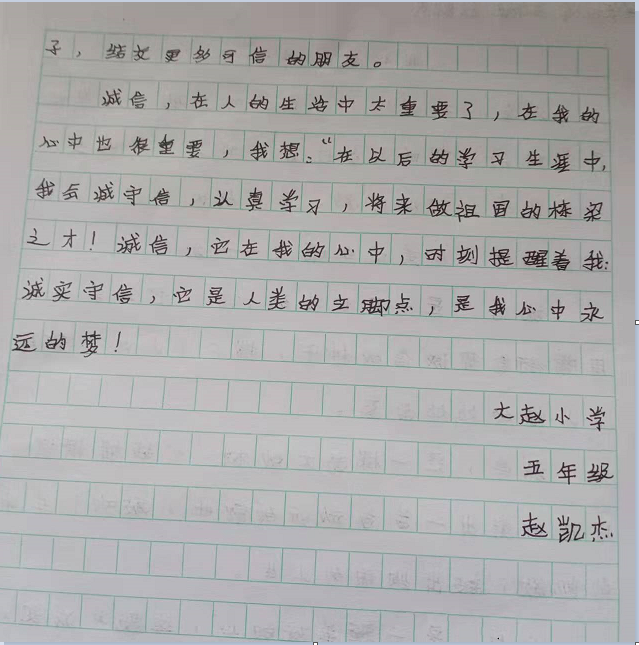 子，结交更多可信的朋友。
诚信，在人的生活中太重要了，在我的
心中也很重要，我想：“在以后的学习生涯中，
我会诚守信，认真学习，将来做祖国的栋梁
之才！诚信，它在我的心中，时刻提醒着我：
诚实守信，它是人类的立脚点，是我心中永
远的梦！
大赵小学
五年级
赵凯杰